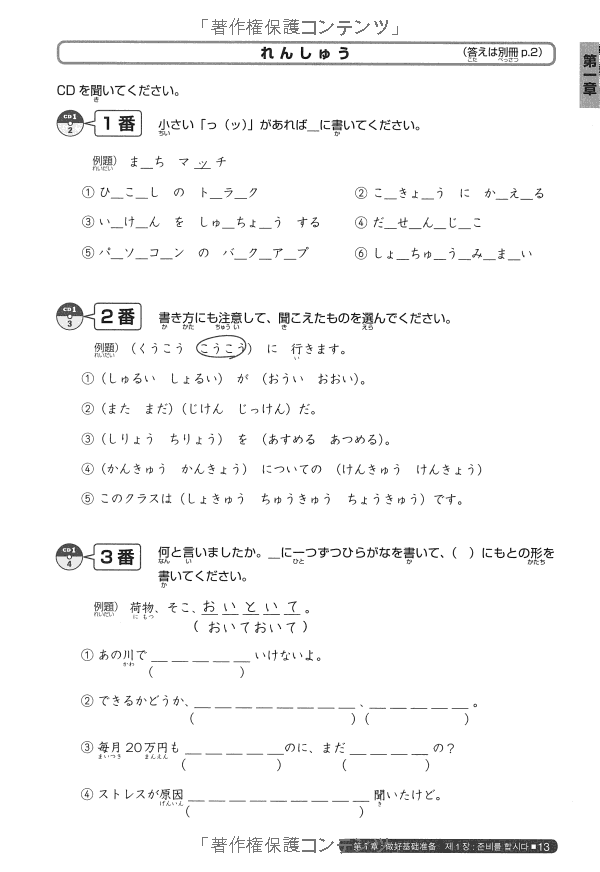 「著作権保護コンテンツ」
れんしゅう (答えは別冊 p.2)
こた べっさつ
第一章
CDを聞いてください。
き
CD1 2 1番 小さい「っ（ッ）」があれば__に書いてください。
ちい か
例題） ま__ち マッチ
れいだい
① ひ__こ__し の ト__ラ__ク ② こ__きょ__う に か__え__る
③ い__け__ん を しゅ__ちょ__う する ④ だ__せ__ん__じ__こ
⑤ パ__ソ__コ__ン の バ__ク__ア__プ ⑥ しょ__ちゅ__う__み__ま__い
CD1 3 2番 書き方にも注意して、聞こえたものを選んでください。
か かた ちゅうい き えら
例題） （くうこう こうこう） に 行きます。
れいだい い
① （しゅるい しょるい） が （おうい おおい）。
② （また まだ）（じけん じっけん）だ。
③ （しりょう ちりょう） を （あすめる あつめる）。
④ （かんきゅう かんきょう） についての （けんきゅう けんきょう）
⑤ このクラスは（しょきゅう ちゅうきゅう ちょうきゅう）です。
CD1 4 3番 何と言いましたか。__に一つずつひらがなを書いて、（ ）にもとの形を
なん い ひと か かたち
書いてください。
か
例題） 荷物、そこ、おいといて。
れいだい にもつ
（おいておいて）
① あの川で __ __ __ __ __ いけないよ。
かわ
（ ）
② できるかどうか、__ __ __ __ __ __ __ __、__ __ __ __ __。
（ ）（ ）
③ 毎月20万円も __ __ __ __ __のに、まだ __ __ __ __ の？
まいつき まんえん
（ ） （ ）
④ ストレスが原因 __ __ __ __ __ __ __ __ __ 聞いたけど。
げんいん き
（ ）
「著作権保護コンテンツ」
第1章：做好基础准备 제1장：준비를 합시다 ■13